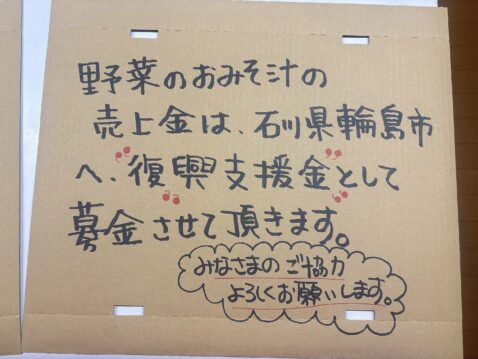 野菜のおみそ汁の
売上金は、石川県輪島市
へ、“復興支援金”として
募金させて頂きます。
みなさまのご協力
よろしくお願いします。